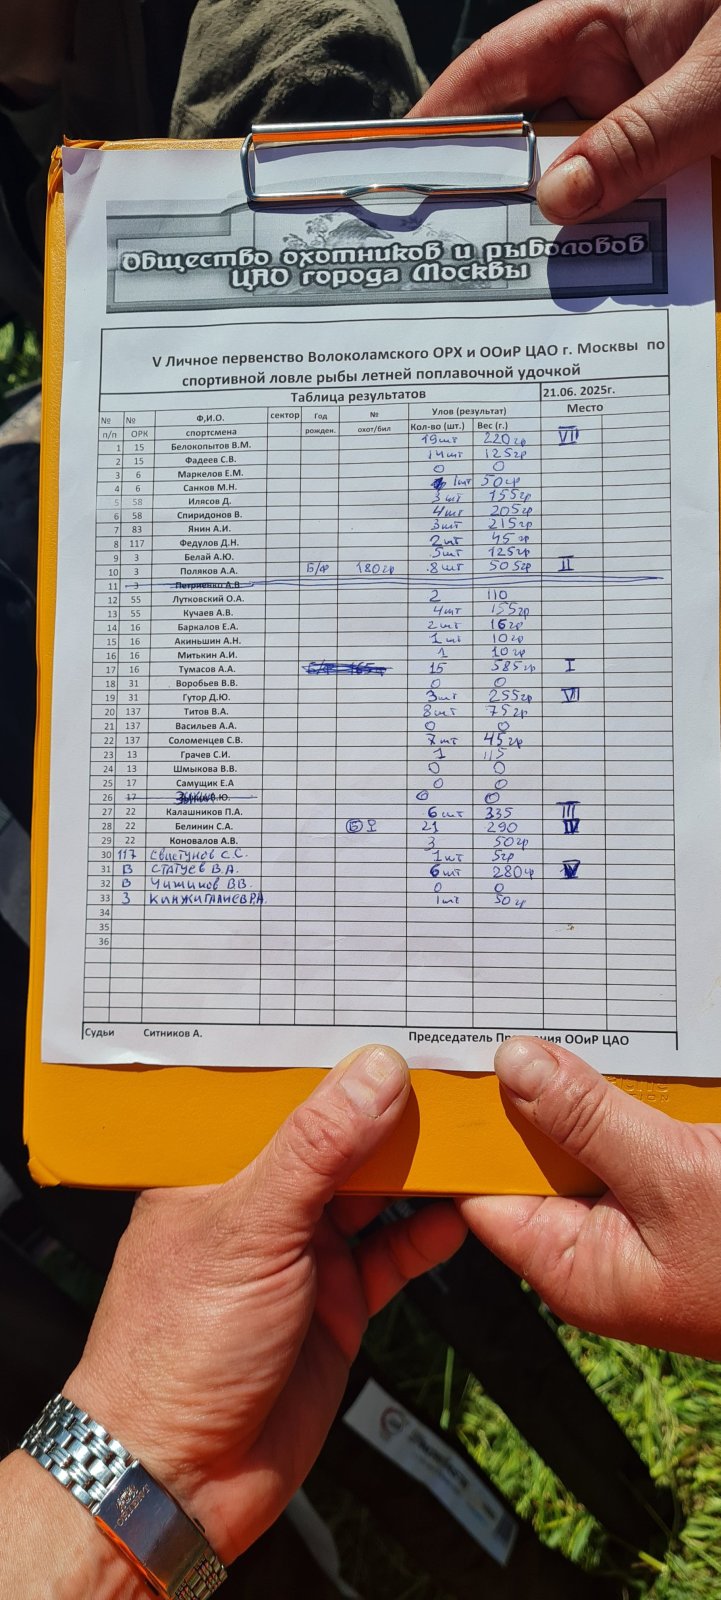 Общество охотников и рыболовов
ЦАО города Москвы
V Личное первенство Волоколамского ОРХ и ООиР ЦАО г. Москвы по
спортивной ловле рыбы летней поплавочной удочкой
Таблица результатов 21.06. 2025г.
№ № Ф,И.О. сектор Год № Улов (результат) Место
п/п ОРК спортсмена рожден. охот/бил Кол-во (шт.) Вес (г.)
1 15 Белокопытов В.М. 19шт 220гр VII
2 15 Фадеев С.В. 14шт 125гр
3 6 Маркелов Е.М. 0 0
4 6 Санков М.Н. 1шт 50гр
5 58 Илясов Д. 3шт 155гр
6 58 Спиридонов В. 4шт 205гр
7 83 Янин А.И. 3шт 215гр
8 117 Федулов Д.Н. 2шт 45гр
9 3 Белай А.Ю. 5шт 125гр
10 3 Поляков А.А. Б/Ф 180гр 8шт 505гр II
11 3 Петриенко А.В.
12 55 Лутковский О.А. 2 110
13 55 Кучаев А.В. 4шт 155гр
14 16 Баркалов Е.А. 2шт 16гр
15 16 Акиньшин А.Н. 1шт 10гр
16 16 Митькин А.И. 1 10гр
17 16 Тумасов А.А. Б/Ф 165гр 15 585гр I
18 31 Воробьев В.В. 0 0
19 31 Гутор Д.Ю. 3шт 255гр VI
20 137 Титов В.А. 8шт 75гр
21 137 Васильев А.А. 0 0
22 137 Соломенцев С.В. 7шт 45гр
23 13 Грачев С.И. 1 115
24 13 Шмыкова В.В. 0 0
25 17 Самущик Е.А 0 0
26 17 .Ю. 0 0
27 22 Калашников П.А. 6шт 335 III
28 22 Белинин С.А. 21 290 IV
29 22 Коновалов А.В. 3 50гр
30 117 Свистунов С.С. 1шт 5гр
31 13 Статуев В.А. 6шт 280гр V
32 13 Чишиков В.В. 0 0
33 3 Кинжигалиев Р.А. 1шт 50гр
34
35
36
Судьи Ситников А. Председатель ООиР ЦАО